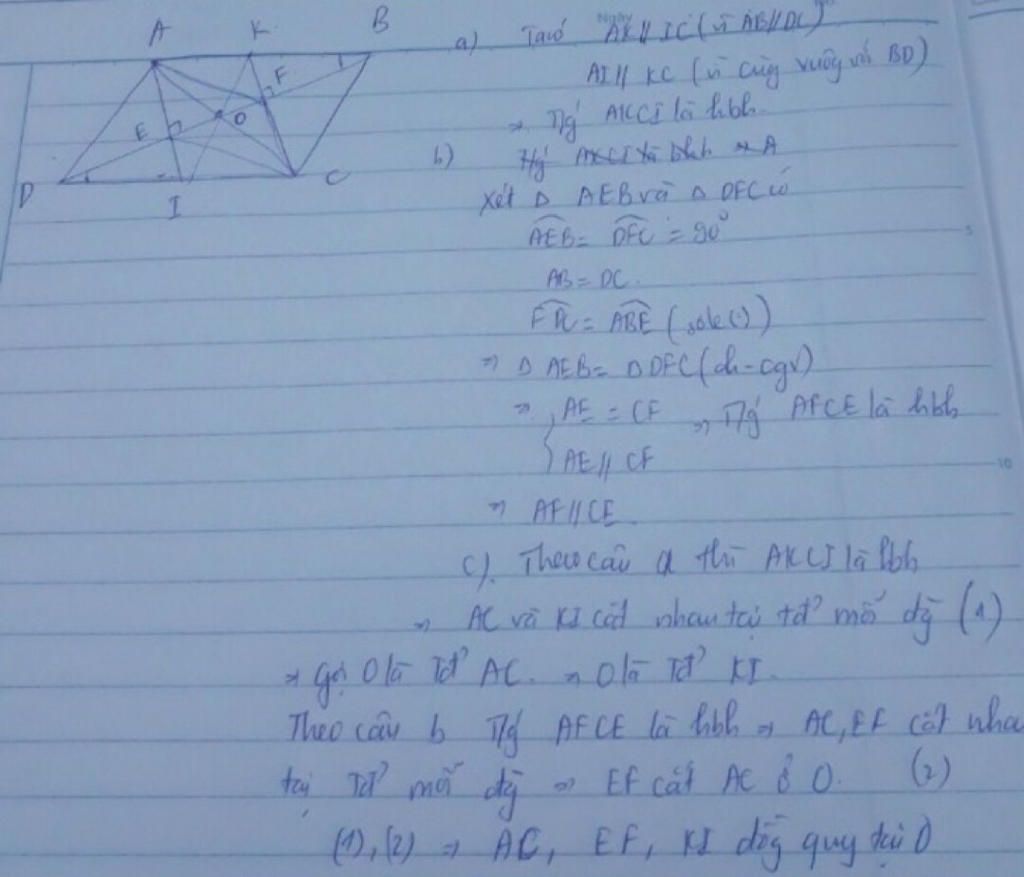 A K B
F
E O
D I C
a) Ta có AK // IC (vì AB // DC)
AI // KC (vì cùng vuông với BD)
=> T/g AKCI là hbh.
b) T/g AKCI là hbh => A
Xét Δ AEB và Δ DFC có
AEB = DFC = 90°
AB = DC.
FDC = ABE (sole (.))
=> Δ AEB = Δ DFC (ch - cgv)
=> AE = CF => T/g AFCE là hbh
AE // CF
=> AF // CE.
c). Theo câu a thì AKCI là hbh
=> AC và KI cắt nhau tại tđ' mỗi đg (1)
=> Gọi O là Tđ' AC. => O là Tđ' KI.
Theo câu b T/g AFCE là hbh => AC, EF cắt nha
tại Tđ' mỗi đg => EF cắt AC ở O. (2)
(1), (2) => AC, EF, KI đồg quy tại O